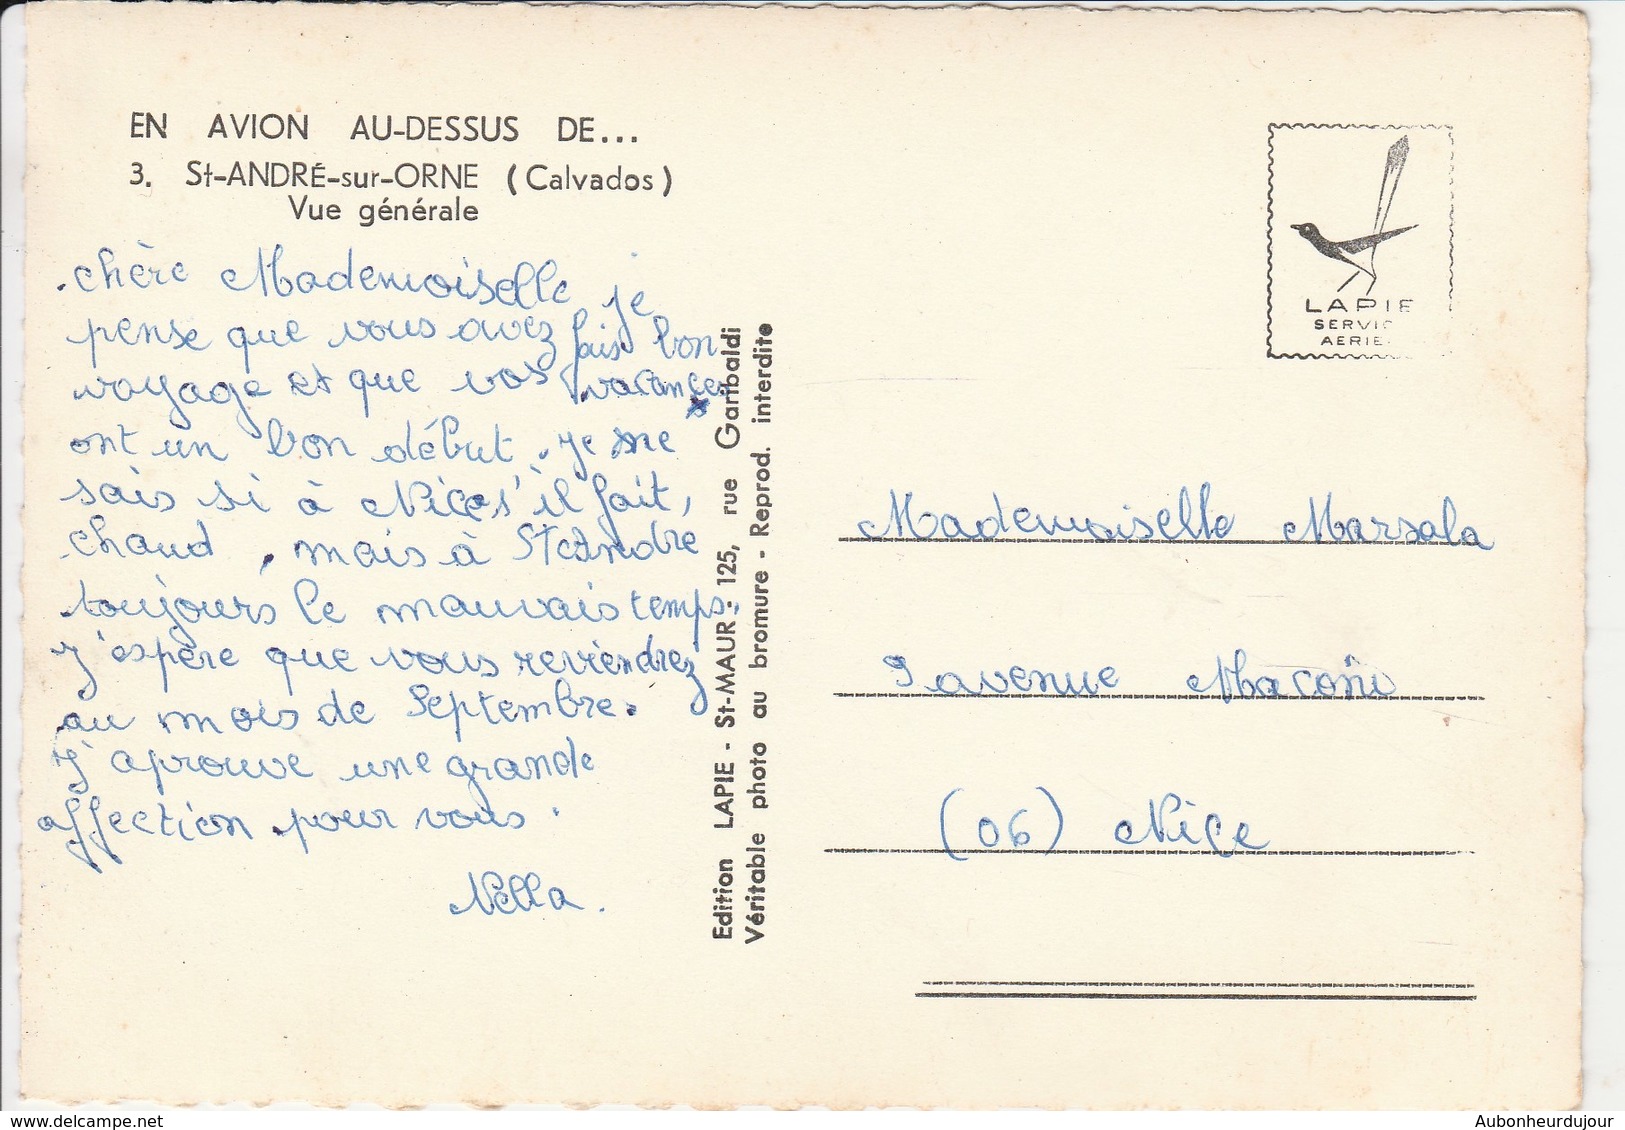 EN AVION AU-DESSUS DE...
3. St-ANDRÉ-sur-ORNE (Calvados)
Vue générale
chère Mademoiselle je
pense que vous avez fais bon
voyage et que vos vacances
ont un bon début. je ne
sais si à Nice s'il fait,
chaud, mais à St André
toujours le mauvais temps.
j'espère que vous reviendrez
au mois de Septembre.
J'aprouve une grande
affection pour vous.
Nella.
Edition LAPIE - St-MAUR : 125, rue Garibaldi
Véritable photo au bromure - Reprod. interdite
LAPIE
SERVIC
AERIE
Mademoiselle Marsala
9 avenue Maconi
(06) Nice
Aubonheurdujour